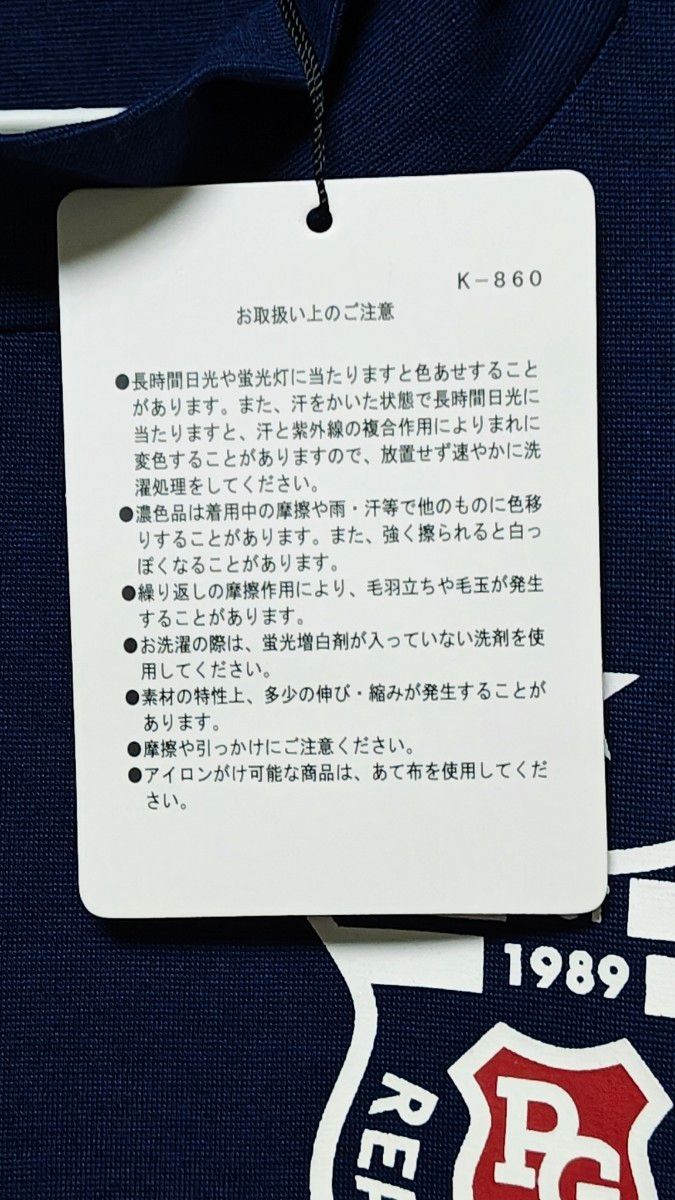 K-860
お取扱い上のご注意
●長時間日光や蛍光灯に当たりますと色あせすること
があります。また、汗をかいた状態で長時間日光に
当たりますと、汗と紫外線の複合作用によりまれに
変色することがありますので、放置せず速やかに洗
濯処理をしてください。
●濃色品は着用中の摩擦や雨・汗等で他のものに色移
りすることがあります。また、強く擦られると白っ
ぽくなることがあります。
●繰り返しの摩擦作用により、毛羽立ちや毛玉が発生
することがあります。
●お洗濯の際は、蛍光増白剤が入っていない洗剤を使
用してください。
●素材の特性上、多少の伸び・縮みが発生することが
あります。
●摩擦や引っかけにご注意ください。
●アイロンがけ可能な商品は、あて布を使用してくだ
さい。
1989
PG